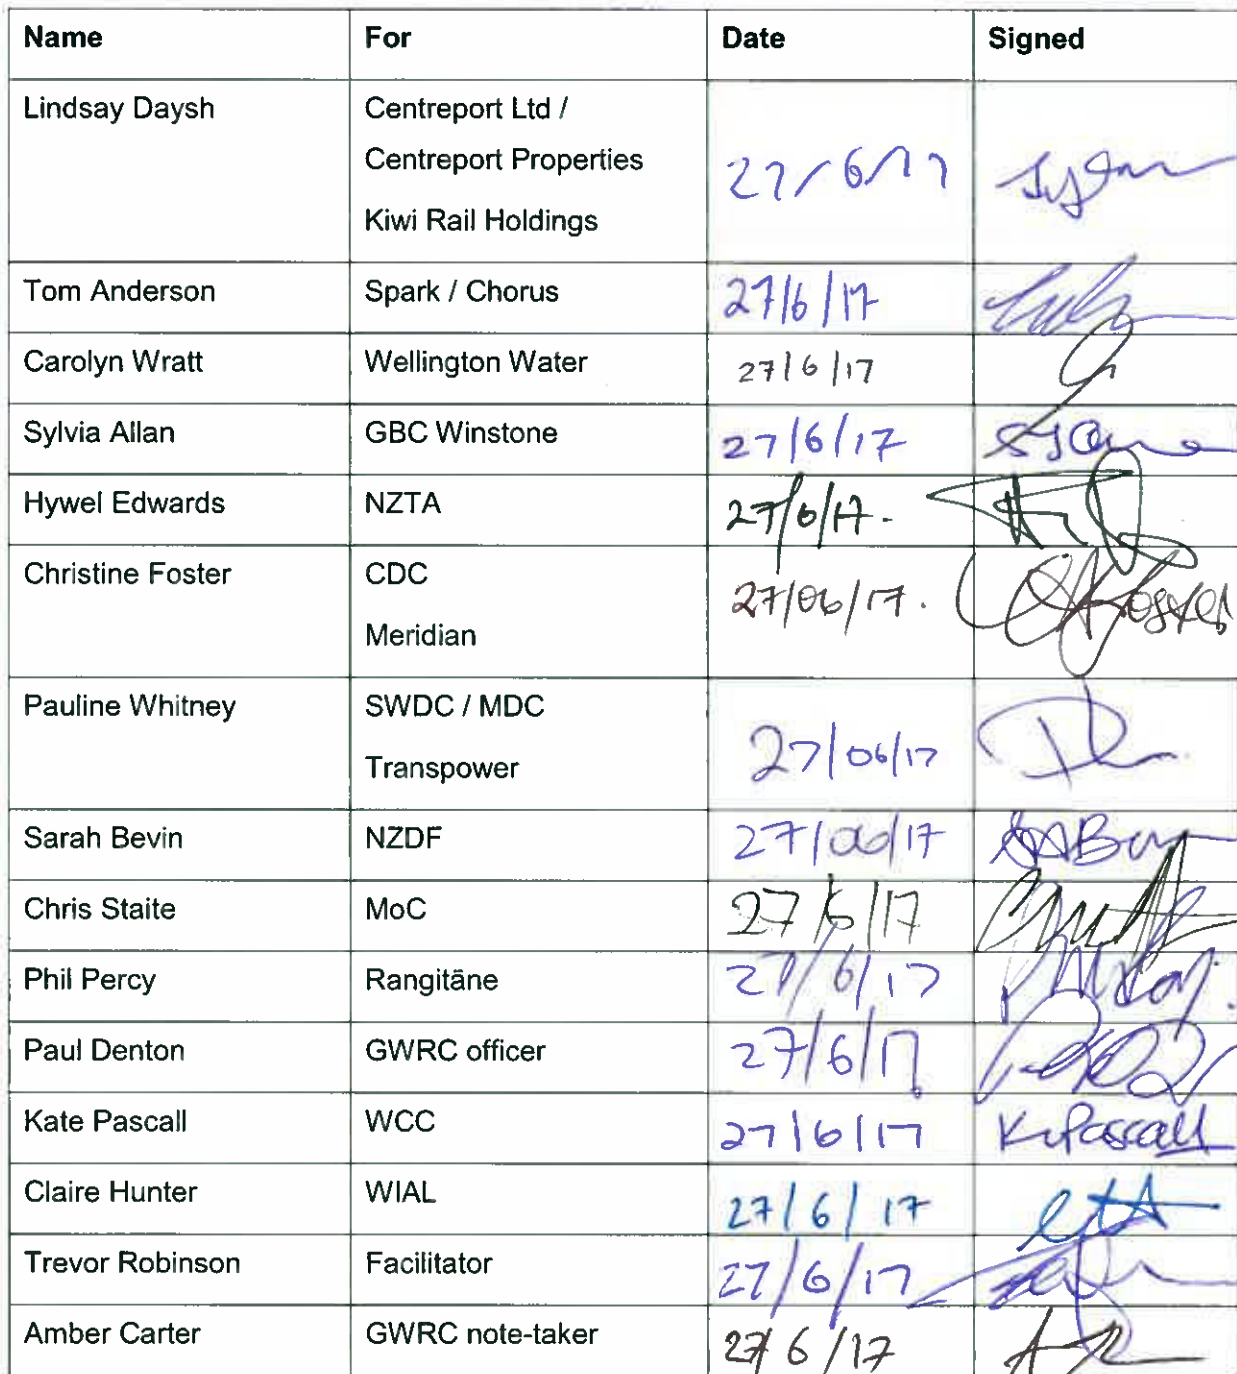 Name For Date Signed
Lindsay Daysh Centreport Ltd / 27/6/17
Centreport Properties
Kiwi Rail Holdings
Tom Anderson Spark / Chorus 27/6/17
Carolyn Wratt Wellington Water 27/6/17
Sylvia Allan GBC Winstone 27/6/17
Hywel Edwards NZTA 27/6/17.
Christine Foster CDC 27/06/17.
Meridian
Pauline Whitney SWDC / MDC 27/06/17
Transpower
Sarah Bevin NZDF 27/06/17
Chris Staite MoC 27/6/17
Phil Percy Rangitāne 27/6/17
Paul Denton GWRC officer 27/6/17
Kate Pascall WCC 27/6/17 K. Pascall
Claire Hunter WIAL 27/6/17
Trevor Robinson Facilitator 27/6/17
Amber Carter GWRC note-taker 27/6/17